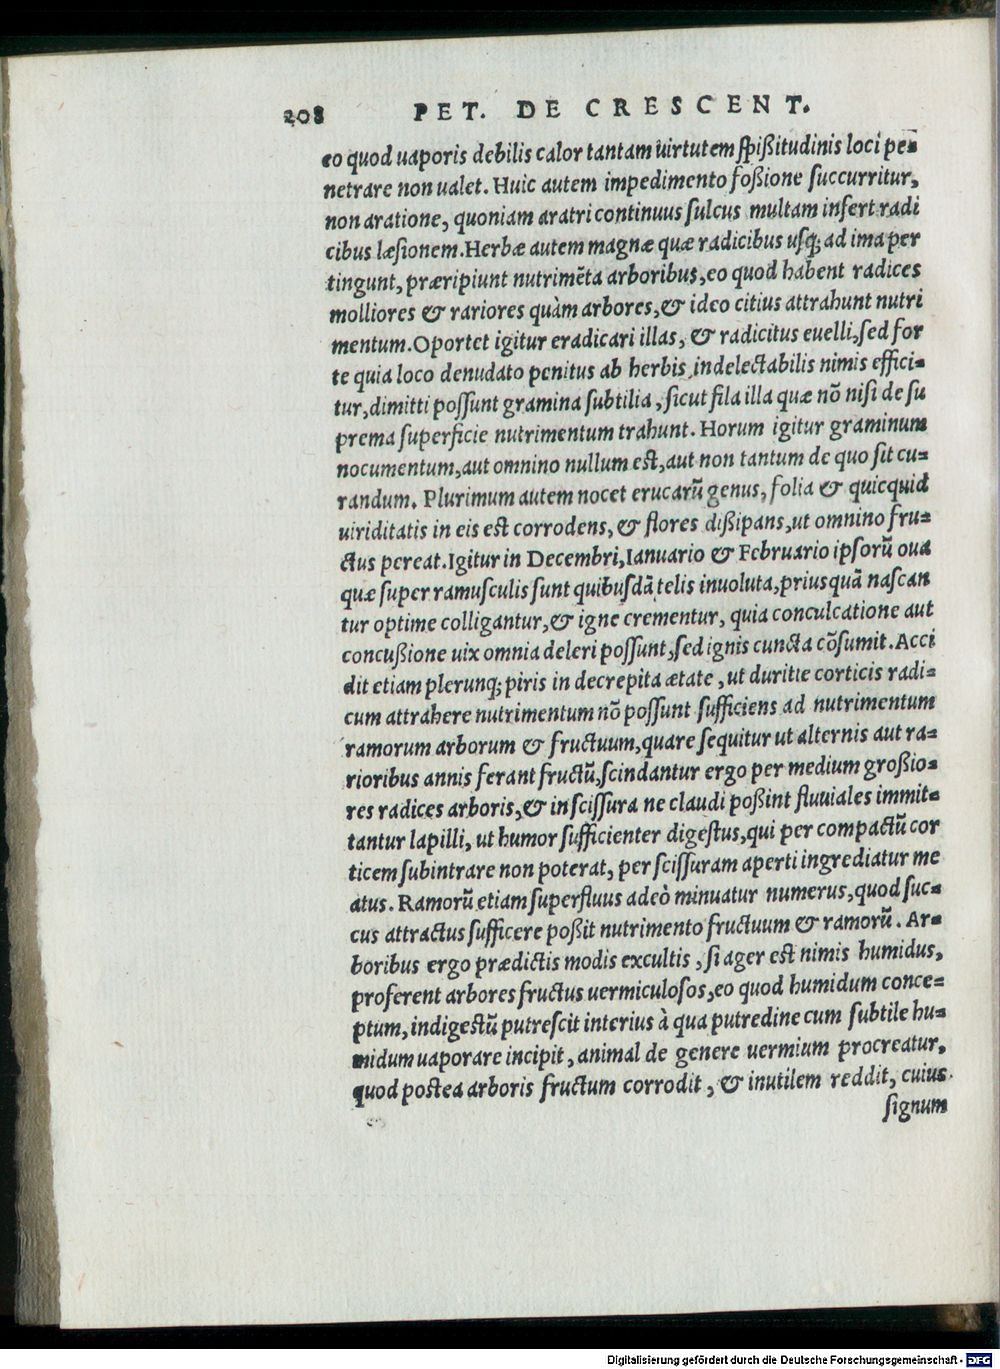 208 PET. DE CRESCENT.
eo quod uaporis debilis calor tantam uirtutem spißitudinis loci pe=
netrare non ualet. Huic autem impedimento foßione succurritur,
non aratione, quoniam aratri continuus sulcus multam infert radi
cibus læsionem. Herbæ autem magnæ quæ radicibus usq; ad ima per
tingunt, præripiunt nutrimẽta arboribus, eo quod habent radices
molliores & rariores quàm arbores, & ideo citius attrahunt nutri
mentum. Oportet igitur eradicari illas, & radicitus euelli, sed for
te quia loco denudato penitus ab herbis indelectabilis nimis effici=
tur, dimitti possunt gramina subtilia, sicut fila illa quæ nõ nisi de su
prema superficie nutrimentum trahunt. Horum igitur graminum
nocumentum, aut omnino nullum est, aut non tantum de quo sit cu=
randum. Plurimum autem nocet erucarũ genus, folia & quicquid
uiriditatis in eis est corrodens, & flores dißipans, ut omnino fru=
ctus pereat. Igitur in Decembri, Ianuario & Februario ipsorũ oua
quæ super ramusculis sunt quibusdã telis inuoluta, priusquã nascan
tur optime colligantur, & igne crementur, quia conculcatione aut
concußione uix omnia deleri possunt, sed ignis cuncta cõsumit. Acci
dit etiam plerunq; piris in decrepita ætate, ut duritie corticis radi=
cum attrahere nutrimentum nõ possunt sufficiens ad nutrimentum
ramorum arborum & fructuum, quare sequitur ut alternis aut ra=
rioribus annis ferant fructũ, scindantur ergo per medium großio=
res radices arboris, & in scissura ne claudi poßint fluuiales immit=
tantur lapilli, ut humor sufficienter digestus, qui per compactũ cor
ticem subintrare non poterat, per scissuram aperti ingrediatur me
atus. Ramorũ etiam superfluus adeò minuatur numerus, quod suc=
cus attractus sufficere poßit nutrimento fructuum & ramorũ. Ar=
boribus ergo prædictis modis excultis, si ager est nimis humidus,
proferent arbores fructus uermiculosos, eo quod humidum conce=
ptum, indigestũ putrescit interius à qua putredine cum subtile hu=
midum uaporare incipit, animal de genere uermium procreatur,
quod postea arboris fructum corrodit, & inutilem reddit, cuius
signum
Digitalisierung gefördert durch die Deutsche Forschungsgemeinschaft - DFG